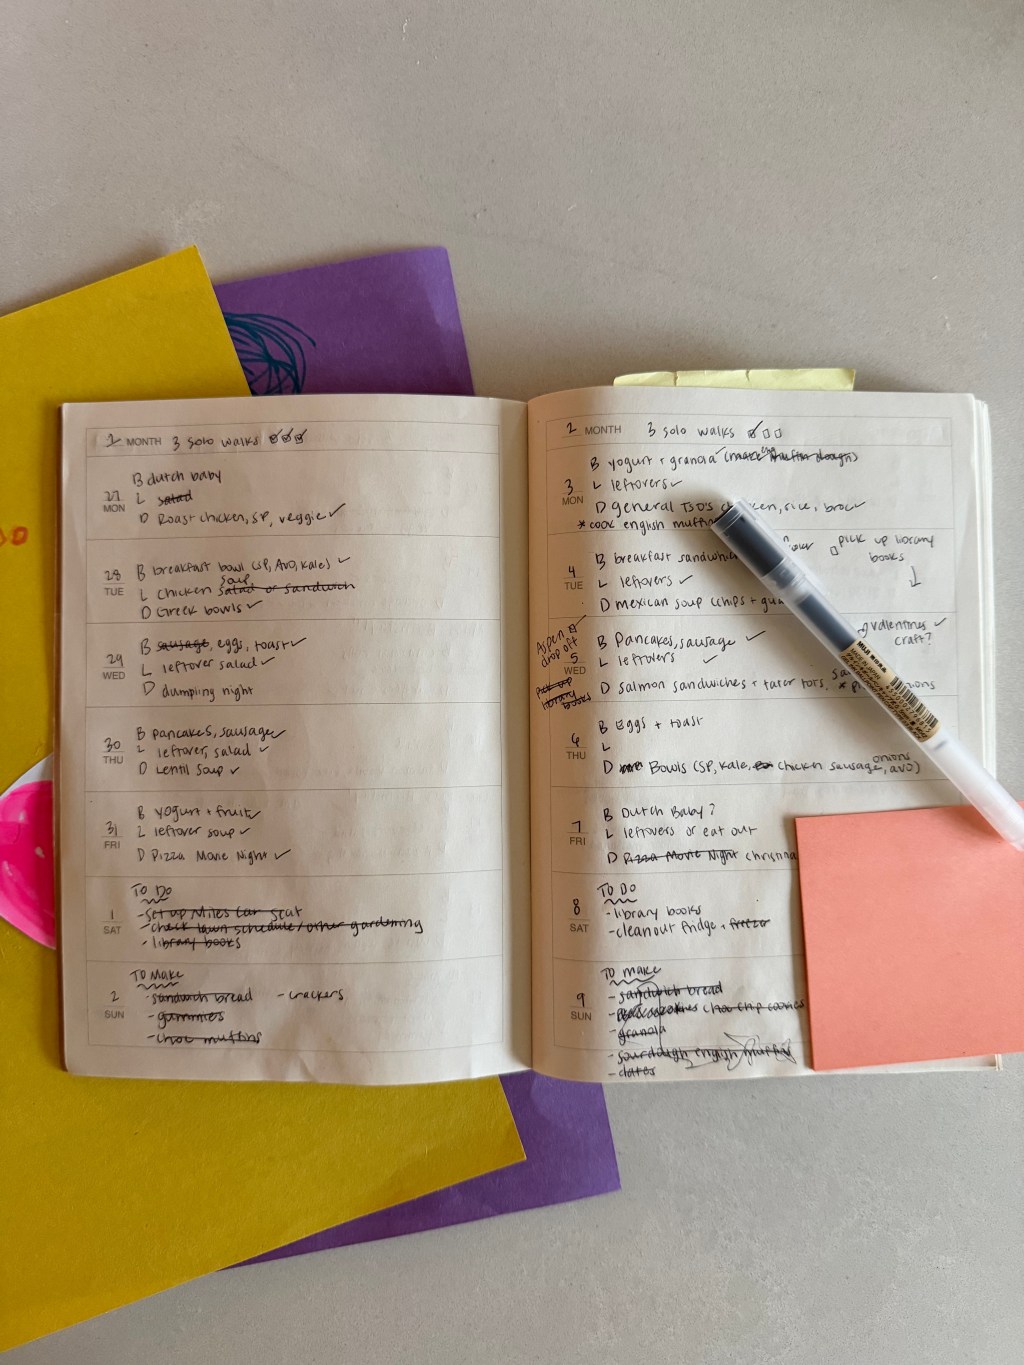 2 MONTH 3 solo walks
27 MON
B dutch baby
L salad
D Roast chicken, SP, veggie ✓
28 TUE
B breakfast bowl (SP, Avo, Kale) ✓
soup
L chicken salad or sandwich
D Greek bowls ✓
29 WED
B sausage, eggs, toast ✓
L leftover salad ✓
D dumpling night
30 THU
B pancakes, sausage ✓
L leftover, salad ✓
D Lentil soup ✓
31 FRI
B yogurt + fruit ✓
L leftover soup ✓
D Pizza Movie Night ✓
1 SAT
TO DO
- set up Miles car seat
- check lawn schedule/other gardening
- library books
2 SUN
TO MAKE
- sandwich bread - crackers
- gummies
- choc muffins
2 MONTH 3 solo walks
3 MON
B yogurt + granola ✓ (make muffin dough)
L leftovers ✓
D general TSO'S rice, broc ✓
* cook english
4 TUE
B breakfast
L leftovers ✓
D mexican soup (chips +
pick up library
books
Aspen
drop off
pick up
library
books
5 WED
B Pancakes, sausage ✓
L leftovers ✓
D salmon sandwiches + tater tots,
valentines ✓
craft?
6 THU
B Eggs + toast
L
D Bowls (SP, kale, chicken sausage, onions, avo)
7 FRI
B Dutch Baby?
L leftovers or eat out
D Pizza Movie Night christina
8 SAT
TO DO
- library books
- cleanout fridge + freezer
9 SUN
TO MAKE
- sandwich bread
- choc chip cookies
- granola
- sourdough english muffin
- dates
MUJI